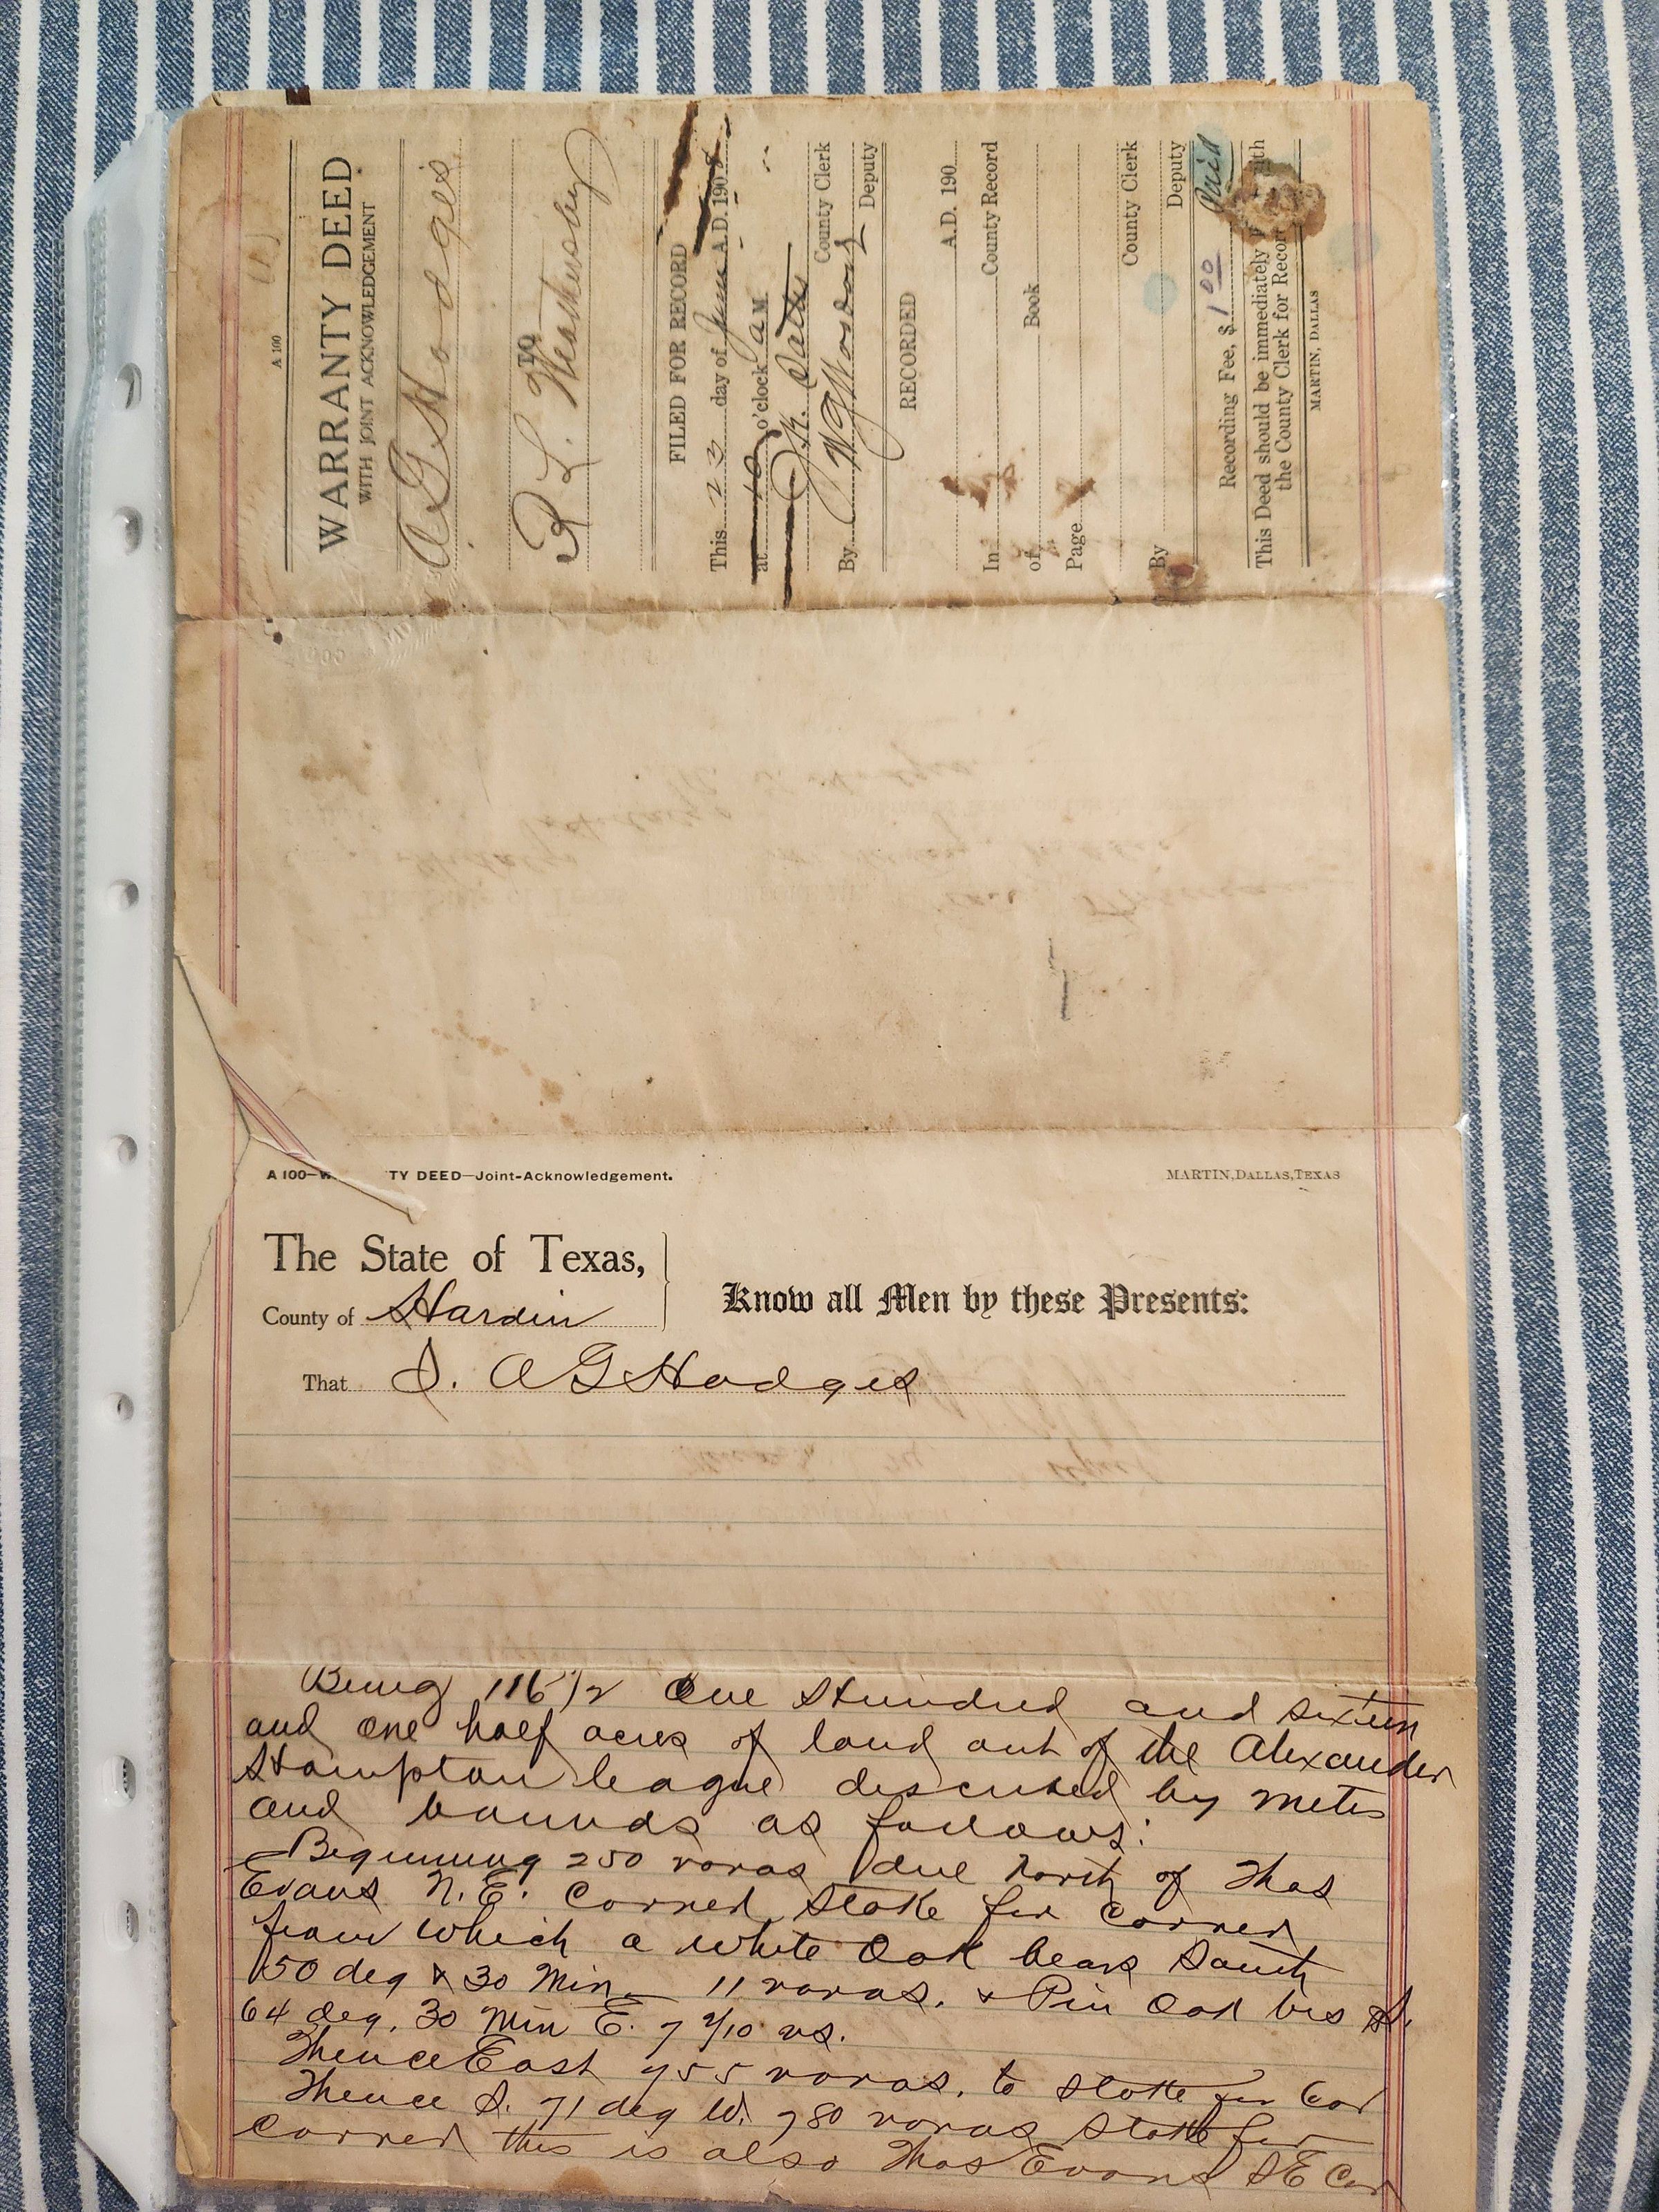 A 100
WARRANTY DEED
WITH JOINT ACKNOWLEDGEMENT
A G Hodges
TO
R. L. Weathersby
FILED FOR RECORD
This 23 day of June A.D. 1908
at 10 o'clock A M.
County Clerk
By Deputy
RECORDED
A.D. 190
In County Record
of Book
Page
County Clerk
By Deputy
Recording Fee, $ 1 00 Paid
This Deed should be immediately
the County Clerk for Record
MARTIN, DALLAS
A 100—W TY DEED—Joint-Acknowledgement.
MARTIN, DALLAS, TEXAS
The State of Texas,
County of Hardin
Know all Men by these Presents:
That I. A G Hodges
Being 116 1/2 One Hundred and sixteen
and one half acres of land out of the Alexander
Hampton league described by metes
and bounds as follows:
Beginning 250 varas due North of Thos
Evans N.E. Corner stake for corner
from which a white Oak bears South
50 deg & 30 Min 11 varas. & Pin Oak brs S.
64 deg. 30 Min E. 7 /10 vs.
Thence East 955 varas. to stake for Cor
Thence S. 71 deg W. 980 varas stake for
corner this is also Thos Evans SE Cor